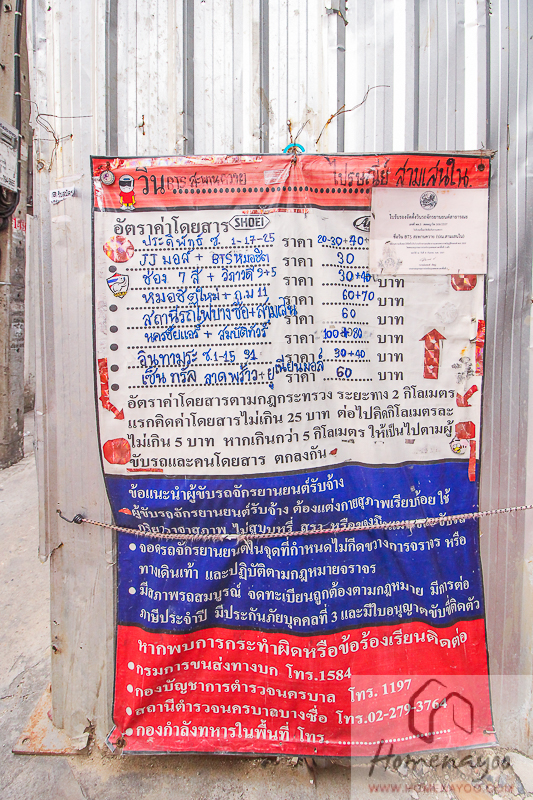 วินการ สะพานควาย ไปรษณีย์ สามเสนใน.
อัตราค่าโดยสาร SHOEI
ประดิพัทธ์ ซ. 1-17-25 ราคา 20-30+40
JJ มอล์ + BTSหมอชิต ราคา 30
ช่อง 7 สี + วิภาวดี 3+5 ราคา 30+40 บาท
หมอชิตใหม่ + ก.ม 11 ราคา 60+70 บาท
สถานีรถไฟบางซื่อ+สามเสน ราคา 60 บาท
นครชัยแอร์ + สมบัติทัวร์ ราคา 100+80 บาท
อินทามระ ซ.1-15 21 ราคา 30+40 บาท
เซ็นทรัล ลาดพร้าว+ยูเนี่ยนมอล์ ราคา 60 บาท
อัตราค่าโดยสารตามกฎกระทรวง ระยะทาง 2 กิโลเมตร
แรกคิดค่าโดยสารไม่เกิน 25 บาท ต่อไปคิดกิโลเมตรละ
ไม่เกิน 5 บาท หากเกินกว่า 5 กิโลเมตร ให้เป็นไปตามผู้
ขับรถและคนโดยสาร ตกลงกัน
ข้อแนะนำผู้ขับรถจักรยานยนต์รับจ้าง
ผู้ขับรถจักรยานยนต์รับจ้าง ต้องแต่งกายสุภาพเรียบร้อย ใช้
ไม่สูบบุหรี่ สุรา
จอดรถจักรยานยนต์ในจุดที่กำหนดไม่กีดขวางการจราจร หรือ
ทางเดินเท้า และปฏิบัติตามกฎหมายจราจร
มีสภาพรถสมบูรณ์ จดทะเบียนถูกต้องตามกฎหมาย มีการต่อ
ภาษีประจำปี มีประกันภัยบุคคลที่ 3 และมีใบอนุญาตขับขี่ติดตัว
หากพบการกระทำผิดหรือข้อร้องเรียนติดต่อ
กรมการขนส่งทางบก โทร.1584
กองบัญชาการตำรวจนครบาล โทร. 1197
สถานีตำรวจนครบาลบางซื่อ โทร.02-279-3764
กองกำลังทหารในพื้นที่ โทร.
Homenayoo
WWW.HOMENAYOO.COM